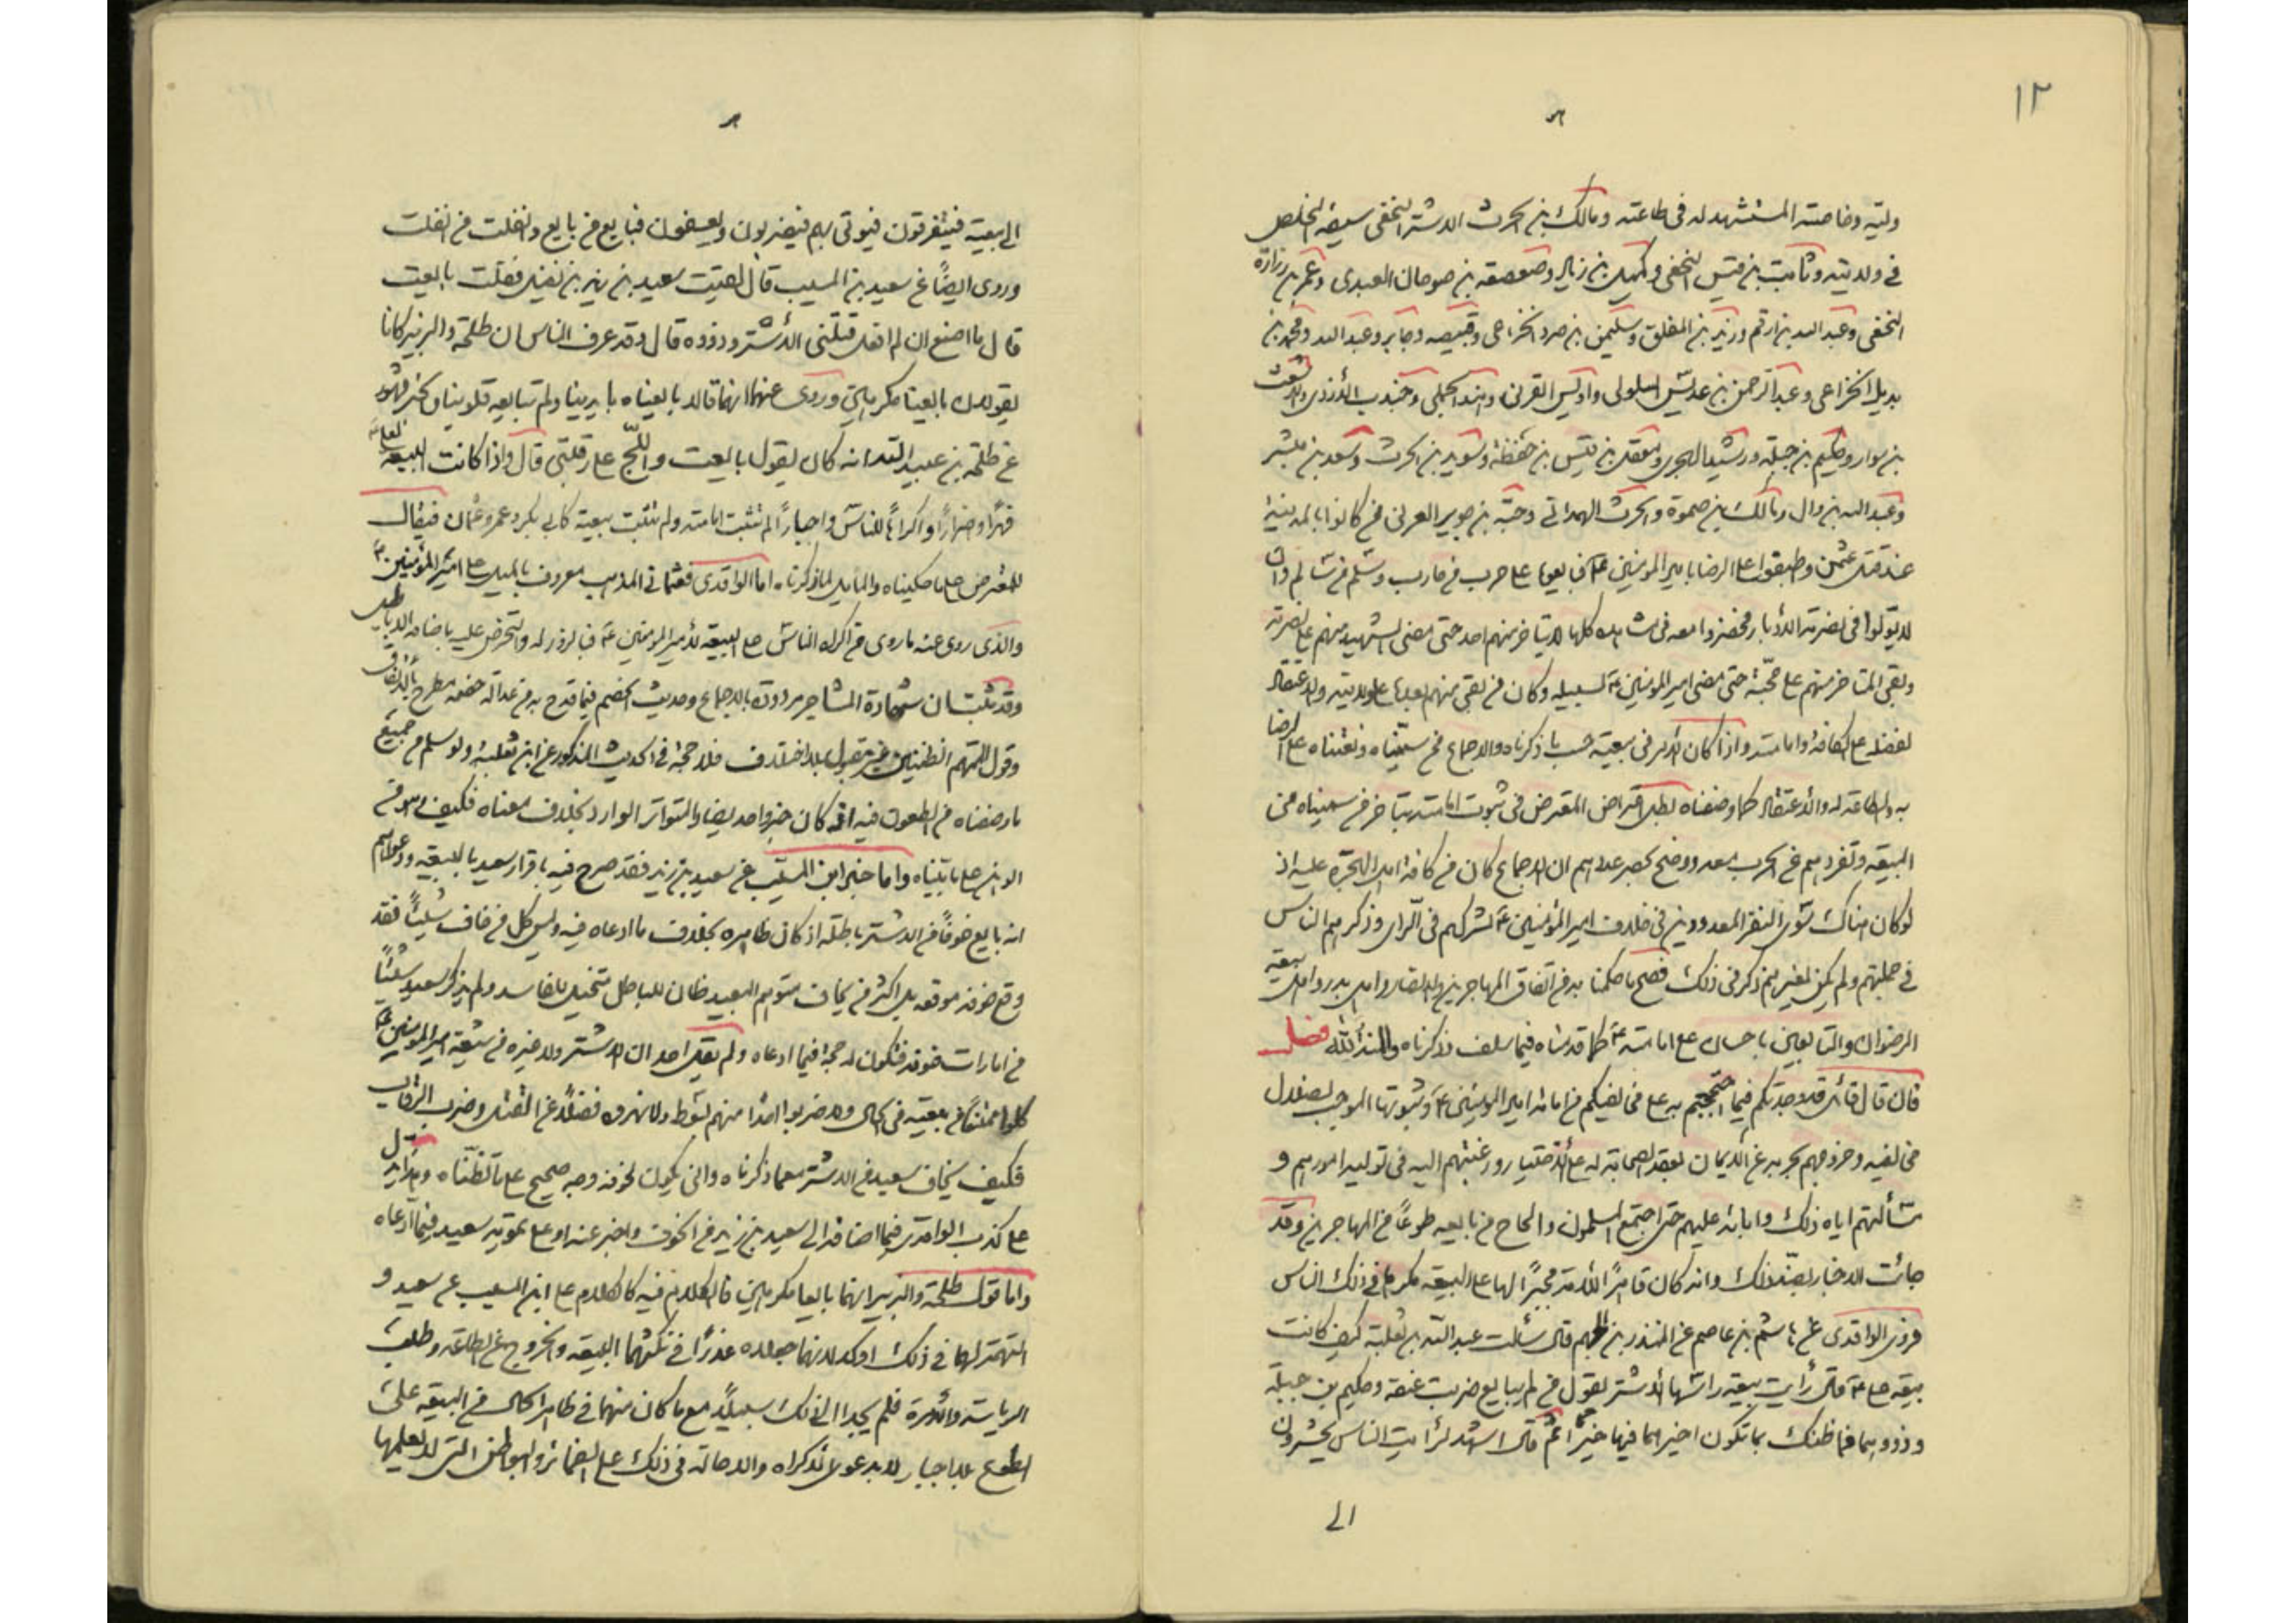 ١٢
وليّه وخاصته المستشهد له فى طاعته ومالك بن الحرث الاشتر النخعى سيفه المخلص
فى ولايته وثابت بن قيس النخعى وكميل بن زياد وصعصعة بن صوحان العبدى وعمر بن زرارة
النخعى وعبد الله بن ارقم وزيد بن الملفق وسليمن بن صرد الخزاعى وقبيصه وجابر وعبد الله ومحمد بن
بديل الخزاعى وعبد الرحمن بن عديس السلولى واويس القرنى وهند الجملى وجندب الأزدى والاشعث
بن سوار وحكيم بن جبلة ورشيد الهجرى ومعقل بن قيس بن حنظلة وسويد بن الحرث وسعد بن مبشر
وعبد الله بن وال ومالك بن ضمرة والحرث الهمدانى وحبّة بن جوير العرنى ممن كانوا بالمدينة
عند قتل عثمن وطبقوا على الرضا بامير المومنين ع فبايعوا على حرب من حارب وسلم من سالم وان
لا يولوا فى نصرته الأدبار فحضروا معه فى مشاهده كلها لا يتاخر منهم احد حتى مضى الشهيد منهم على نصرته
وبقى المتاخر منهم على محبّة حتى مضى امير المومنين ع لسبيله وكان من بقى منهم بعده على ولايته والاعتقاد
لفضله على الكافة وامامته واذا كان الامر فى بيعته حسب ما ذكرناه والاجماع ممن سميناه ونعتناه على الرضا
به والطاعة له والاعتقاد كما وصفناه بطل اعتراض المعترض فى ثبوت امامته بتاخر من سميناه من
البيعة وتفردهم عن الحرب معه ووضح بحصر عددهم ان الاجماع كان من كافة اهل الهجرة عليه اذ
لو كان هناك سوى النفر المعدودين فى خلاف امير المؤمنين ع لشركهم فى الراى وذكرهم الناس
فى جملتهم ولم يكن لغيرهم ذكر فى ذلك فصح ما حكمنا به من اتفاق المهاجرين والانصار واهل بدر واهل بيعة
الرضوان والتابعين باحسان على امامته ع كما قدمناه فيما سلف وذكرناه والمنة لله فصل
فان قال قائل قد وجدتكم فيما احتججتم به على من نفيكم من امامة امير المومنين ع وثبوتها الموجب لضلال
من نفيه وخروجهم بحربه عن الأيمان بعقد الصحابة له على الاختيار ورغبتهم اليه فى توليه امورهم و
مسألتهم اياه ذلك وابائه عليهم حتى اجتمع المسلمون والحاح من بايعه طوعاً من المهاجرين وقد
جائت الاخبار بضد ذلك وانه كان قاهرًا للأمة مجبرًا لها على البيعة مكرها فى ذلك الناس
فروى الواقدى عن هاشم بن عاصم عن المنذر بن الجهم قال سئلت عبد الله بن ثعلبة كيف كانت
بيعة على ع قال رأيت بيعة راسها الأشتر يقول من لم يبايع ضربت عنقه وحكيم بن جبلة
وذووهما فما ظنك بما تكون اخيرهما فيها خيرا ثم قال اشهد لرأيت الناس يحشرون
الى

الى بيعته فيتفرقون فيوتى بهم فيضربون ويعسفون فبايع من بايع وانفلت من انفلت
وروى ايضاً عن سعيد بن المسيب قال لقيت سعيد بن زيد بن نفيل فقلت بايعت
قال ما اصنع ان لم افعل قتلنى الأشتر وذووه قال وقد عرف الناس ان طلحة والزبير كانا
يقولان بايعنا مكرهين وروى عنهما انهما قالا بايعناه بايدينا ولم تبايعه قلوبنا
عن طلحة بن عبيد الله انه كان يقول بايعت واللّج على رقبتى قال واذا كانت البيعة
قهرًا وضرارًا واكراهًا للناس واجبارًا لم تثبت امامته ولم تثبت بيعته كابى بكر وعمر وعثمان فيقال
للمعترض على ما حكيناه والمايل لما ذكرناه اما الواقدى فعثمانى المذهب معروف بالميل على امير المؤمنين ع
والذى روى عنه ما روى من اكراه الناس على البيعة لأمير المومنين ع فبالزور له والتحرض عليه باضافة الاباطيل
وقد ثبت ان شهادة المشاجر مردودة بالاجماع وحديث الخصم فيما قدح به من عدالة خصمه مطرح بالاتفاق
وقول المتهم الظنين غير مقبول بلا اختلاف فلا حجة فى الحديث المذكور عن ابن ثعلبة ولو سلم من جميع
ما وصفناه من الطعون فيه اذ كان خبر واحد يضاد المتواتر الوارد بخلاف معناه فكيف وهو من
الوهن على ما بيناه واما خبر ابن المسيّب عن سعيد بن زيد فقد صرح فيه باقرار سعيد بالبيعة ودعواهم
انه بايع خوفاً من الاشتر باطلة اذ كان ظاهره بخلاف ما ادعاه فيه وليس كل من خاف شيئًا فقد
وقع خوفه موقعه بل اكثر من يخاف متوهم البعيد ظان للباطل متخيل للفاسد ولم يذكر سعيد شيئًا
من امارات خوفه فتكون له حجة فيما ادعاه ولم يقل احد ان الاشتر ولا غيره من شيعة امير المومنين ع
كلموا ممتنعًا من بيعته فى الحال ولا ضربوا احدًا منهم بسوط ولا نهروه فضلًا عن القتل وضرب الرقاب
فكيف يخاف سعيد من الاشتر مع ما ذكرناه وانى يكون لخوفه وجه صحيح على ما تظنّناه وهذا يدل
على كذب الواقدى فيما اضافه الى سعيد بن زيد من الخوف واخبر عنه او على تمويه سعيد فيما ادّعاه
واما قول طلحة والزبير انهما بايعا مكرهين فالكلام فيه كالكلام على ابن المسيب عن سعيد و
التهمة لهما فى ذلك اوكد لانهما جعلاه عذرًا فى نكثهما البيعة والخروج عن الطاعة وطلب
الرياسة والأمرة فلم يجدا الى ذلك سبيلاً مع ما كان منهما فى ظاهر الحال من البيعة على
الطوع بلا اجبار الا بدعوى الاكراه والاحالة فى ذلك على الضمائر والبواطن التى لا يعلمها